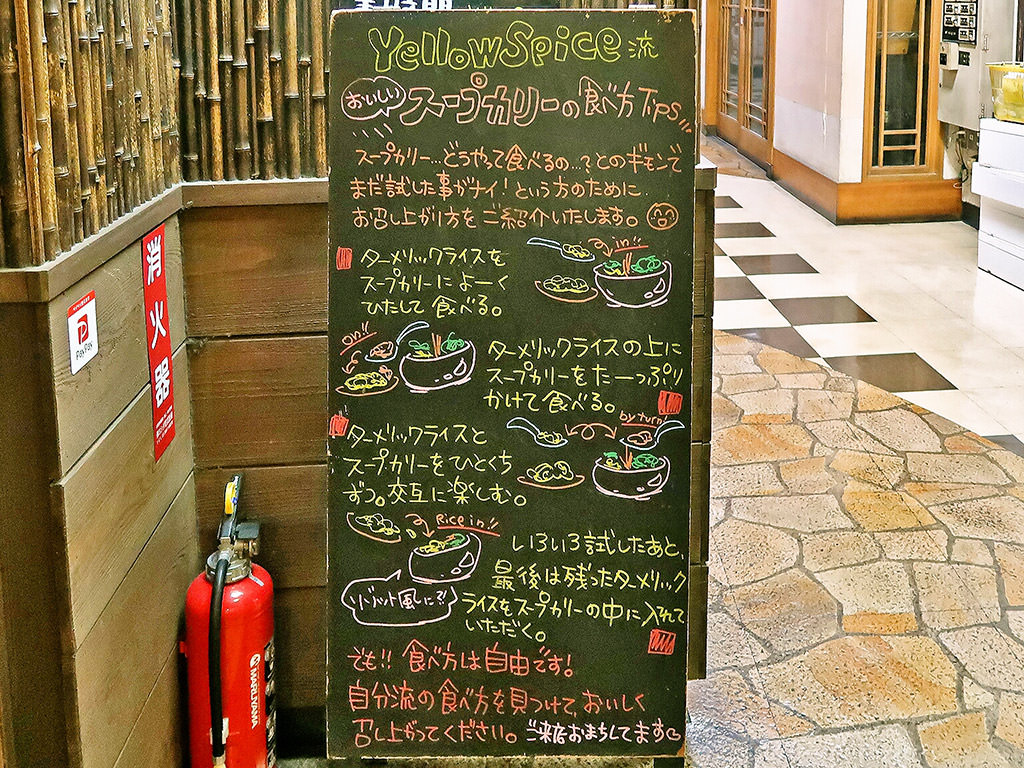 YellowSpice流
おいしい
スープカリーの食べ方Tips!!
スープカリー…どうやって食べるの…?とのギモンで
まだ試した事がナイ!という方のために
お召し上がり方をご紹介いたします。
ターメリックライスを
スープカリーによーく
ひたして食べる。
in!!
on!!
ターメリックライスの上に
スープカリーをたーっぷり
かけて食べる。
ターメリックライスと
スープカリーをひとくち
ずつ。交互に楽しむ。
by turn!
Rice in!!
リゾット風に?!
いろいろ試したあと、
最後は残ったターメリック
ライスをスープカリーの中に入れて
いただく。
でも!!食べ方は自由です!
自分流の食べ方を見つけて、おいしく
召し上がってください。ご来店おまちしてます
消火器
PayPay
MARUYAMA